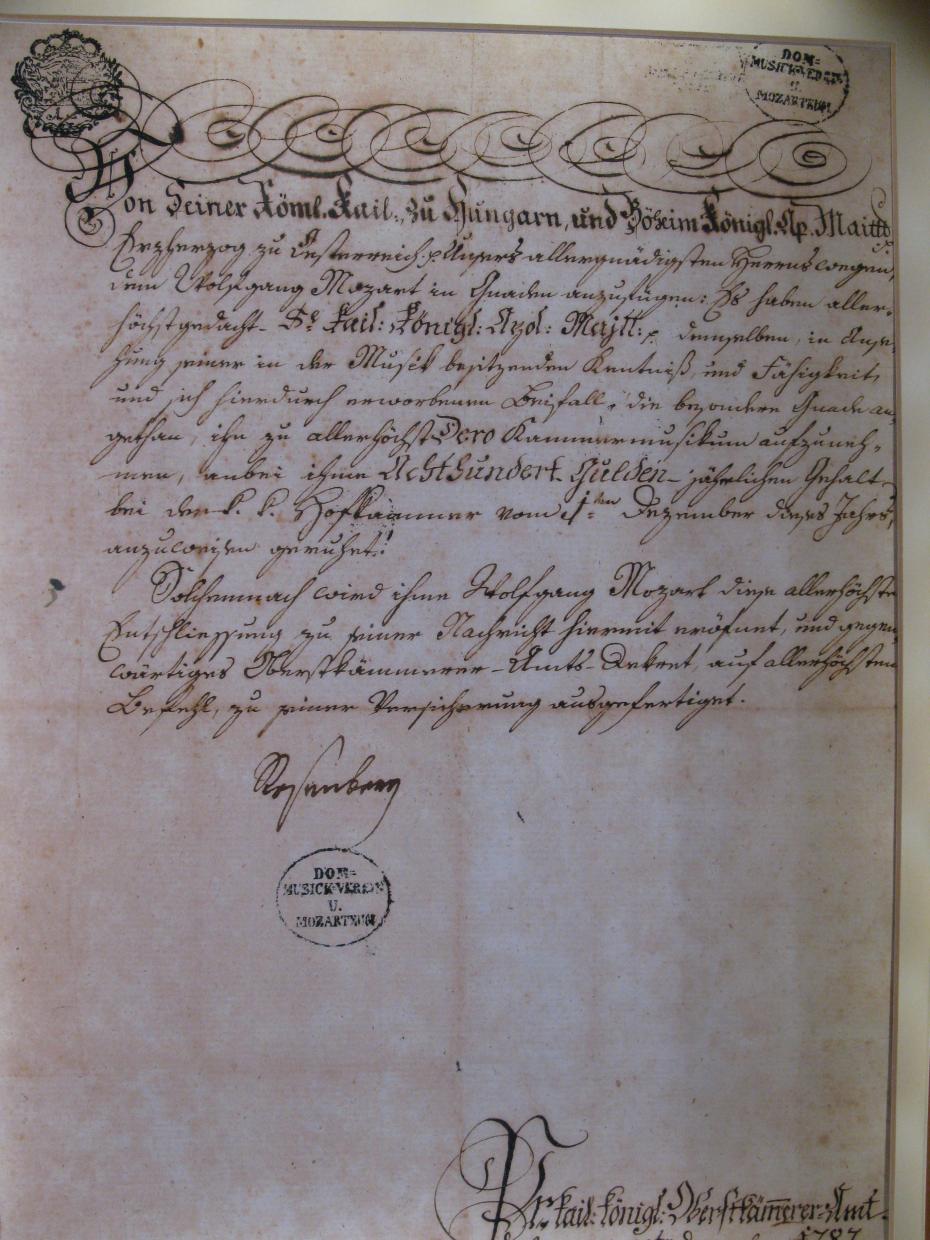 DOM=
MUSICK-VEREIN
U.
MOZARTEUM
Von Seiner Röml. Kail. zu Hungarn, und Böheim Königl. Ap. Maitt.
Erzherzog zu Oesterreich p. Unsers allergnädigsten Herrns wegen,
dem Wolfgang Mozart in Gnaden anzufügen: Es haben aller-
höchstgedacht- Se kail: Königl: Apol: Majtt: p demselben, in Anse-
hung seiner in der Musik besitzenden Kentniß, und Fähigkeit,
und sich hierdurch erworbenen Beifall, die besondere Gnade an
gethan, ihn zu allerhöchst Dero Kammermusikum aufzuneh-
men, anbei ihme Achthundert Gulden- jährlichen Gehalt-
bei der k. k. Hofkammer vom 1ten Dezember dieses Jahrs,
anzuweisen geruhet:
Solchemnach wird ihme Wolfgang Mozart diese allerhöchste
Entschliessung zu seiner Nachricht hiermit eröfnet, und gegen
wärtiges Oberstkämmerer-Amts-Dekret, auf allerhöchsten
Befehl, zu seiner Versicherung ausgefertiget.
Rosenberg
DOM=
MUSICK-VEREIN
U.
MOZARTEUM
Pr. kail: königl: Oberstkämerer-Amt.
1787